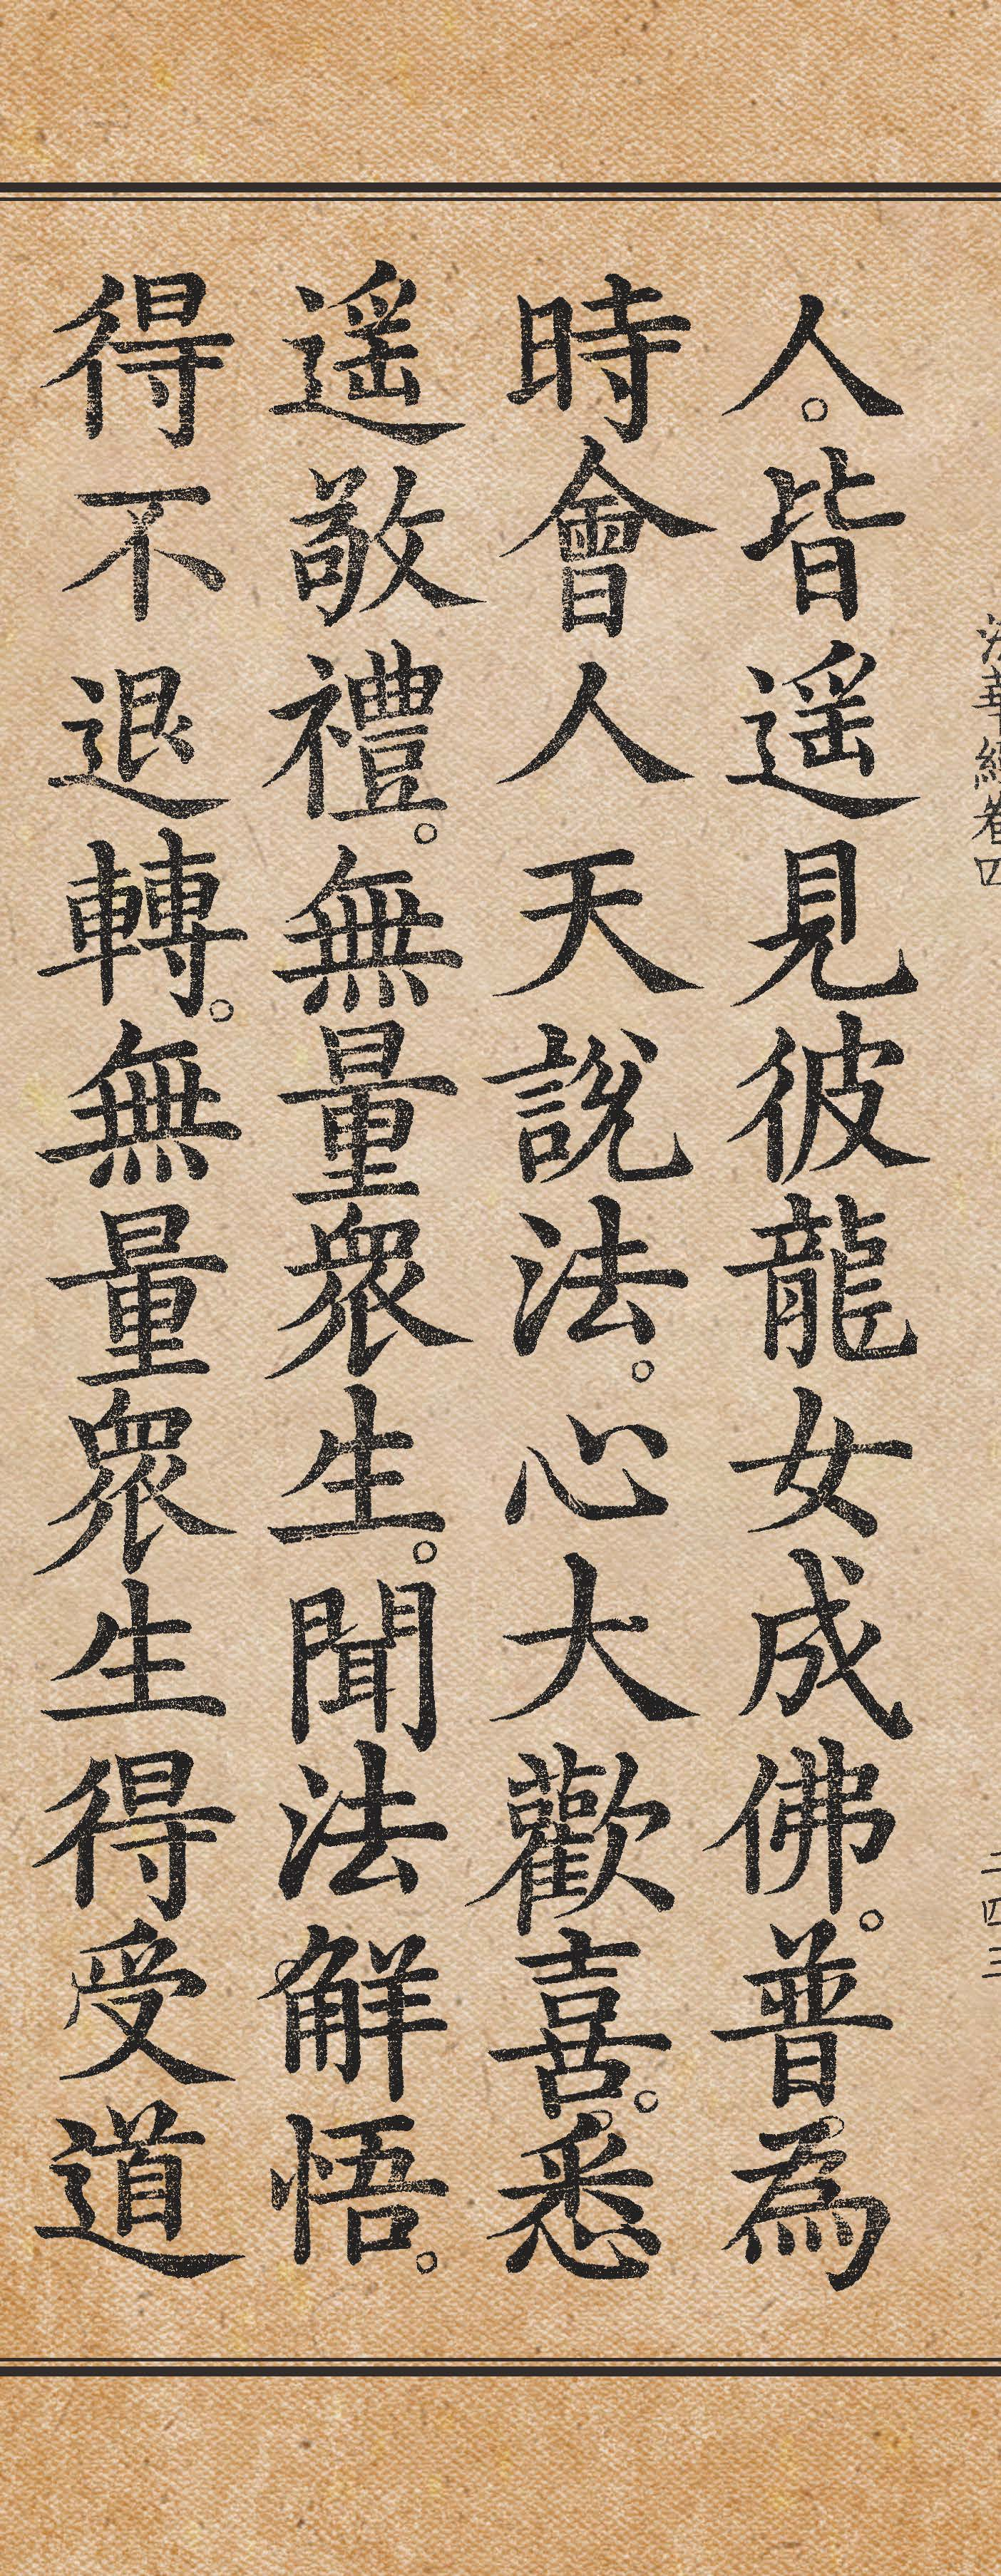 法華經卷四
二四三
人。皆遥見彼龍女成佛。普為
時會人天說法。心大歡喜。悉
遥敬禮。無量衆生。聞法解悟。
得不退轉。無量衆生得受道